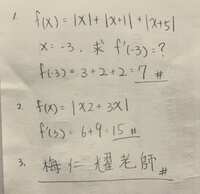 1. f(x) = |x| + |x+1| + |x+5|
x = -3, 求 f'(-3) = ?
f(-3) = 3 + 2 + 2 = 7 #
2. f(x) = |x2 + 3x|
f'(3) = 6 + 9 = 15 #
3. 梅仁耀老師 #